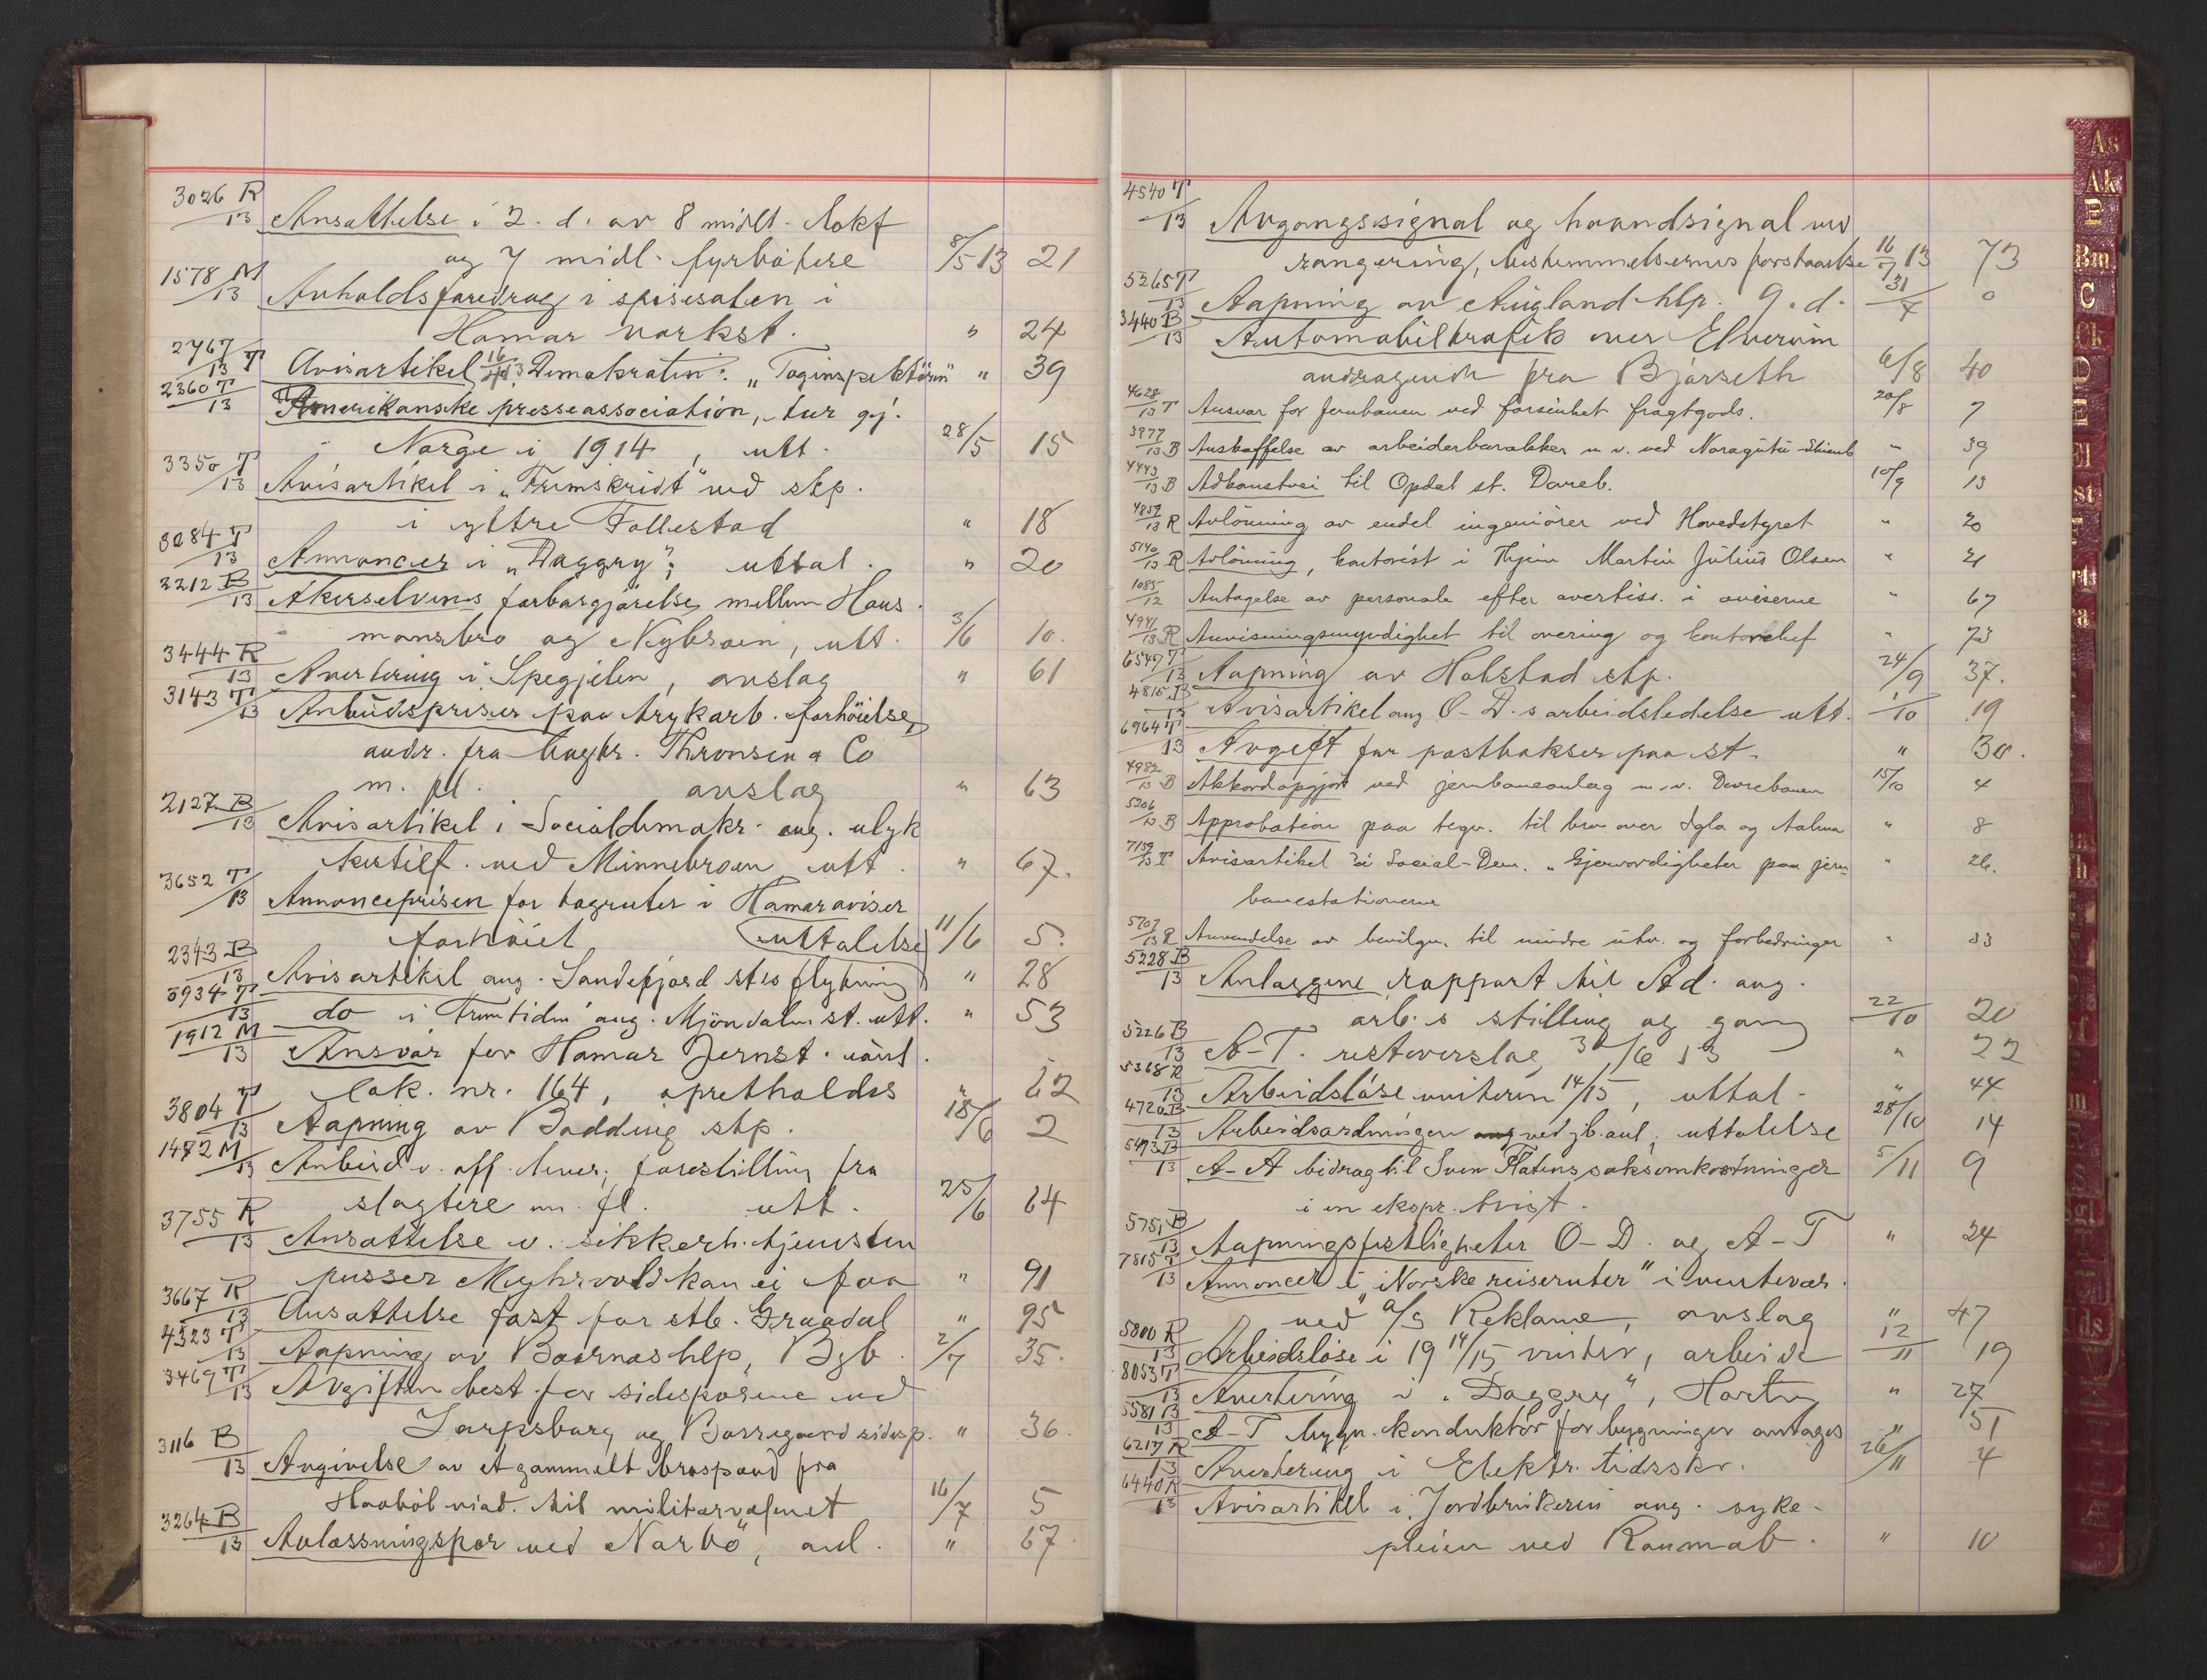 3026 R
13 Ansættelse i 2. d. av 8 midlt. lokf
og 7 midl. fyrbøtere 8/5 13 21
1578 M
13 Avholdsforedrag i spisesalen i
Hamar verkst. " 24
2767
13 T Avisartikel 16/4 13 Demokraten: „Toginspektören" " 39
2360 T
13 Amerikanske presseassociation, tur gj.
Norge i 1914, utt. 28/5 15
3350 T
13 Avisartikel i „Fremskridt" ved stp.
i ytre Follestad " 18
3084 T
13 Annoncer i „Daggry", uttal. " 20
3212 B
13 Akerselvens farbargjörelse mellem Haus
mansbro og Nybroen, utt. 3/6 10.
3444 R
13 Avertering i Spegjelen, avslag " 61
3143 T
13 Anbudspriser paa trykarb. forhöielse,
andr. fra Thronsen & Co
m. fl. avslag " 63
2127 B
13 Avisartikel i Socialdemokr. ang. ulyk
kestilf. ved Minnebroen utt. " 67.
3652 T
13 Annonceprisen for togruter i Hamar aviser
forhöiet uttalelse 11/6 5.
2343 B
13 Avisartikel ang. Sandefjord st.s flytning " 28
3934 T
13 do i Fremtiden ang. Mjöndalen st. utt. " 53
1912 M
13 Ansvar for Hamar Jernst.
lok. nr. 164, opretholdes " 62
3804 T
13 Aapning av Bodding stp. 18/6 2
1472 M
13 Anbud v. off. lever. forestilling fra
slagtere m. fl. utt. 25/6 64
3755 R
13 Ansættelse v. sikkerh. tjenesten
pusser Myhrvold kan ei faa " 91
3667 R
13 Ansættelse fast for stb. Graadal " 95
4323 T
13 Aapning av Baarnas hlp, Bjb. 2/7 35.
3469 T
13 Avgiften best. for sidesporene ved
Sarpsborg og Borregaard sidesp. " 36.
3116 B
13 Avgivelse av et gammelt brospand fra
Haaböl viad. til militærvæsenet 16/7 5
3264 B
13 Avlæssningsspor ved Narbö, anl. " 67
4540 T
13 Avgangssignal og haandsignal ved
rangering, bestemmelsernes forstaaelse 16/7 13 73
5265 T
13 Aapning av Augland hlp. 9. d. 31/7 0
3440 B
13 Automobiltrafik over Elverum
andragende fra Bjørseth 6/8 40
4628
13 T Ansvar for Jernbanen ved forsinket fragtgods. 20/8 7
3977
13 B Anskaffelse av arbeiderbarakker m. v. ved Naragutu " 39
4443
13 B Adkomstvei til Opdal st. Doreb. 10/9 13
4859
13 R Avlönning av endel ingeniörer ved Hovedstyret " 20
5140
13 R Avlönning, kontorist i Thjem Martin Julius Olsen " 21
1085
12 Antagelse av personale efter avertiss. i aviserne " 67
4941
13 R Anvisningsmyndighet til overing og kontorchef " 73
6549 T
13 Aapning av Holstad stp. 24/9 37.
4815 B
13 Avisartikel ang O-D.s arbeidsledelse utt. 1/10 19
6964 T
13 Avgift for postbokser paa st. " 30.
4982
13 B Akkordopgjør ved jernbaneanlæg m. v. Dovrebanen 15/10 4
5206
13 B Approbation paa tegn. til bro over Igla og Aalma " 8
7159
13 T Avisartikel i Social-Dem. „Gjenvordigheter paa jern " 26.
banestationerne
5707
13 R Anvendelse av bevilgn. til mindre utv. og forbedringer " 33
5228 B
13 Anlæggene rapport til Ad. ang.
arb.s stilling og gang 22/10 20
5226 B
13 A-T. restoverslag 30/6 13 " 22
5368 R
13 Arbeidslöse vinteren 14/15, uttal. " 44
4720 B
13 Arbeidsordningen ved jb.anl, uttalelse 28/10 14
5493 B
13 A-A bidrag til Sven Flatens saksomkostninger 5/11 9
i en ekspr. tvist.
5751 B
13 Aapningsfestligheter O-D. og A-T " 24
7815 T
13 Annoncer i „Norske reiseruter" i ventevær.
ved A/S Reklame, avslag " 47
5800 R
13 Arbeidslöse i 19 14/15 vinter, arbeide 12/11 19
8053 T
13 Avertering i „Daggry", Horten " 27
5581 B
13 A-T bygn. konduktör for bygninger antages " 51
6217 R
13 Avertering i Elektr. tidsskr. 26/11 4
6440 R
13 Avisartikel i Jordbrukeren ang. syke-
pleien ved Raumab. " 10
As
Ak
B
Bm
C
Ck
D
E
El